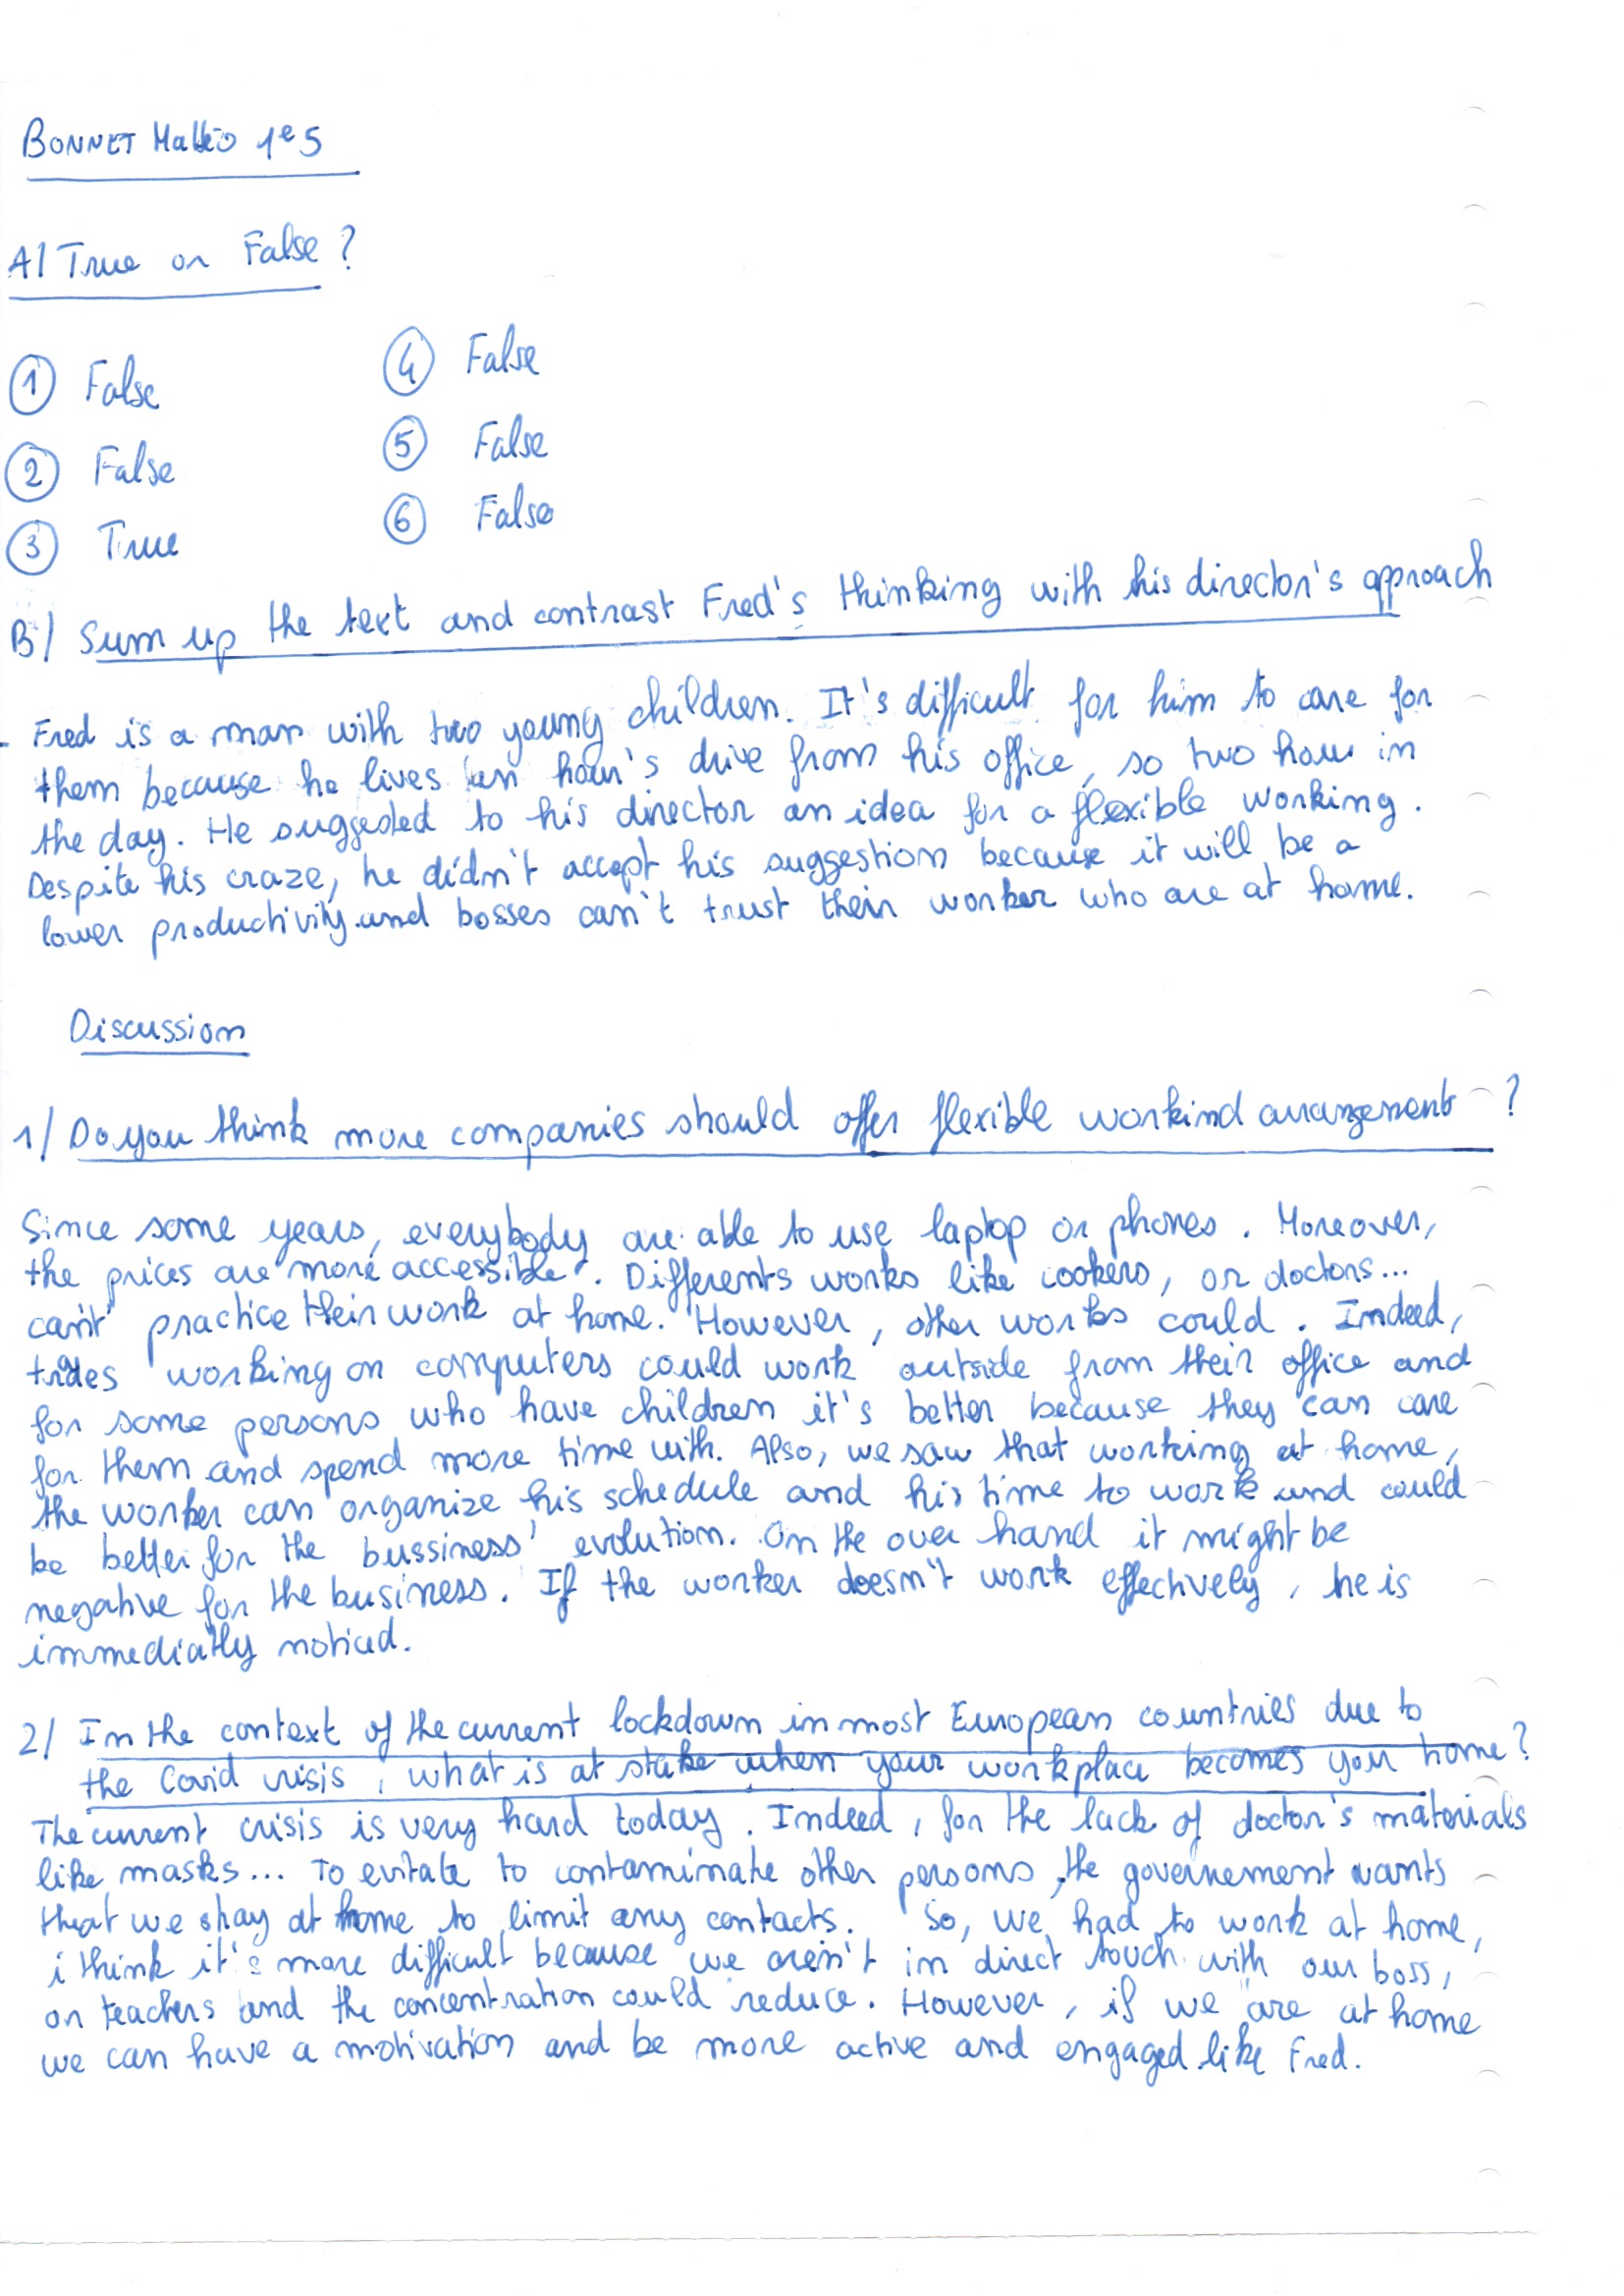 BONNET Mattéo 1e5
A/ True or False ?
① False
② False
③ True
④ False
⑤ False
⑥ False
B/ Sum up the text and contrast Fred's thinking with his director's approach
Fred is a man with two young children. It's difficult for him to care for
them because he lives an hour's drive from his office, so two hour in
the day. He suggested to his director an idea for a flexible working.
Despite his craze, he didn't accept his suggestion because it will be a
lower productivity and bosses can't trust their worker who are at home.
Discussion
1/ Do you think more companies should offer flexible workind arrangement ?
Since some years, everybody are able to use laptop or phones. Moreover,
the prices are "more accessible". Differents works like cookers, or doctors...
can't practice their work at home. However, other works could. Indeed,
trades working on computers could work outside from their office and
for some persons who have children it's better because they can care
for them and spend more time with. Also, we saw that working at home,
the worker can organize his schedule and his time to work and could
be better for the bussiness' evolution. On the over hand it might be
negative for the business. If the worker doesn't work effectively, he is
immediatly noticed.
2/ In the context of the current lockdown in most European countries due to
the Covid crisis, what is at stake when your workplace becomes your home ?
The current crisis is very hard today. Indeed, for the lack of doctor's materials
like masks... To evitate to contaminate other persons, the governement wants
that we stay at home to limit any contacts. So, we had to work at home,
i think it's more difficult because we aren't in direct touch with our boss,
or teachers and the concentration could reduce. However, if we are at home
we can have a motivation and be more active and engaged like Fred.